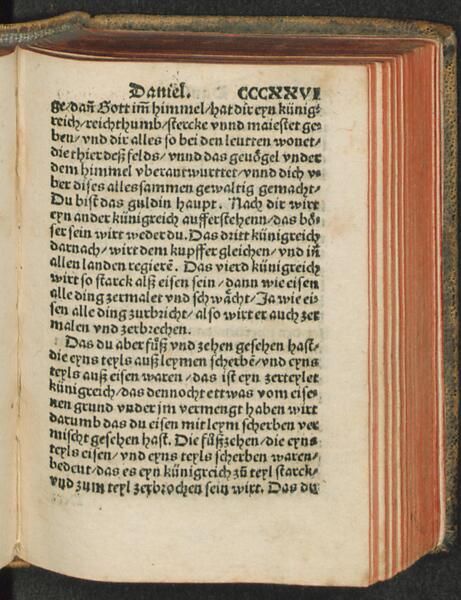 Daniel. CCCXXVI
ge/dañ Gott im̃ himmel/hat dir eyn künig⸗
reich/reichthumb/stercke vnnd maiestet ge⸗
ben/vnd dir alles so bei den leutten wonet/
die thier deß felds/vnnd das geuögel vnder
dem himmel vberantwurttet/vnnd dich v⸗
ber dises alles sammen gewaltig gemacht/
Du bist das guldin haupt. Nach dir wirt
eyn ander künigreich aufferstehenn/das bö⸗
ser sein wirt weder du. Das dritt künigreich
darnach/wirt dem kupffer gleichen/vnd iñ
allen landen regierẽ. Das vierd künigreich
wirt so starck alß eisen sein/dann wie eisen
alle ding zermalet vnd schwächt/Ja wie ei⸗
sen alle ding zurbricht/also wirt er auch zer
malen vnd zerbrechen.
Das du aber füß vnd zehen gesehen hast/
die eyns teyls auß leymen scherbẽ/vnd eyns
teyls auß eisen waren/das ist eyn zerteylet
künigreich/das dennocht ettwas vom eise⸗
nen grund vnder jm vermengt haben wirt
darumb das du eisen mit leym scherben ver
mischt gesehen hast. Die fůßzehen/die eyns
teyls eisen/vnd eyns teyls scherben waren/
bedeut/das es eyn künigreich zů teyl starck/
vnd zum teyl zerbrochen sein wirt. Das du